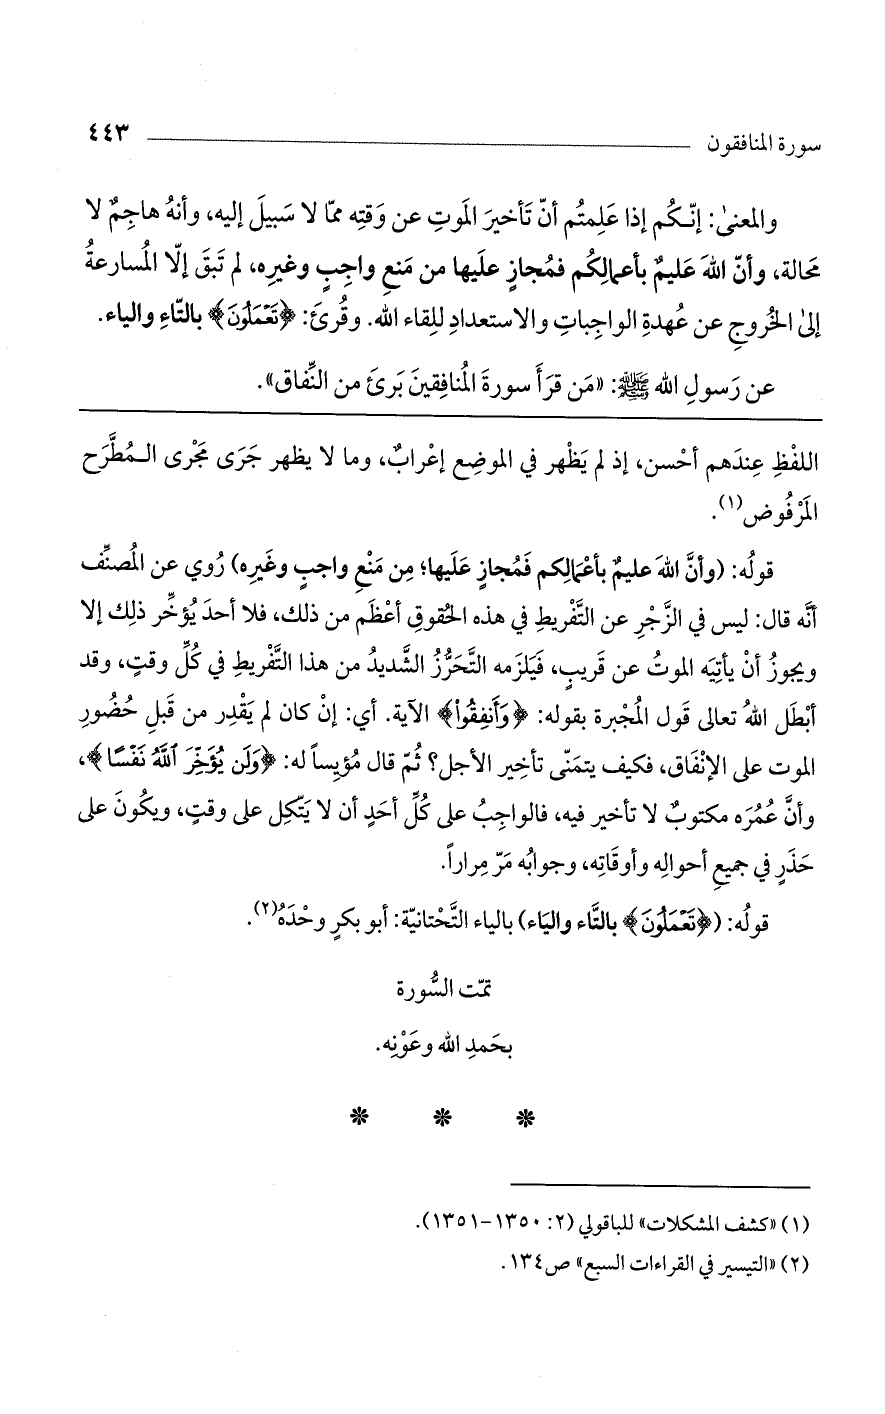 سورة المنافقون ٤٤٣
والمعنىٰ: إنّكُم إذا عَلِمتُم أنّ تَأخيرَ الَموتِ عن وَقتِه ممّا لا سَبيلَ إليه، وأنهُ هاجِمٌ لا
مَحالة، وأنّ اللهَ عَليمٌ بأعمالِكُم فمُجازٍ علَيها من مَنعِ واجِبٍ وغيرِه، لم تَبقَ إلّا الُمسارعةُ
إلىٰ الخُروجِ عن عُهدةِ الواجِباتِ والاستعدادِ لِلِقاء الله. وقُرئَ: ﴿تَعۡمَلُونَ﴾ بالتّاءِ والياء.
عن رَسولِ الله ﷺ: «مَن قرَأَ سورةَ الُمنافِقينَ بَرئَ من النِّفاق».
اللفْظِ عِندَهم أحْسن، إذ لم يَظْهر في الموضِع إعْرابٌ، وما لا يظهر جَرَى مَجْرى الـمُطَّرَح
الَمرْفُوض(١).
قولُه: (وأنَّ اللهَ عليمٌ بأعْمَالِكم فَمُجازٍ عَلَيها؛ مِن مَنْعِ واجبٍ وغَيرِه) رُوي عن الُمصنِّف
أنَّه قال: ليس في الزَّجْرِ عن التَّفْريط في هذه الحُقوقِ أعْظَم من ذلك، فلا أحدَ يُؤخِّر ذلِك إلا
ويجوزُ أنْ يأتِيَه الموتُ عن قَريبٍ، فَيَلزمه التَّحَرُّزُ الشَّديدُ من هذا التَّفْريطِ في كُلِّ وقتٍ، وقد
أبْطَل اللهُ تعالى قَول الُمجْبرة بقوله: ﴿وَأَنفِقُواْ﴾ الآية. أي: إنْ كان لم يَقْدِر من قَبلِ حُضُورِ
الموت على الإنْفَاق، فكيف يتمَنّى تأخِير الأجل؟ ثُمّ قال مُؤيِساً له: ﴿وَلَن يُؤَخِّرَ ٱللَّهُ نَفْسًا﴾،
وأنَّ عُمُرَه مكتوبٌ لا تأخير فيه، فالواجِبُ على كُلِّ أحَدٍ أن لا يَتّكِل على وقتٍ، ويكُونَ على
حَذَرٍ في جميعِ أحوالِه وأوقَاتِه، وجوابُه مَرّ مِراراً.
قولُه: (﴿تَعۡمَلُونَ﴾ بالتَّاء والْيَاء) بالياء التَّحْتانيّة: أبو بكرٍ وحْدَهُ(٢).
تمّت السُّورة
بحَمدِ الله وعَوْنِه.
* * *
(١) «كشف المشكلات» للباقولي (٢: ١٣٥٠-١٣٥١).
(٢) «التيسير في القراءات السبع» ص١٣٤.